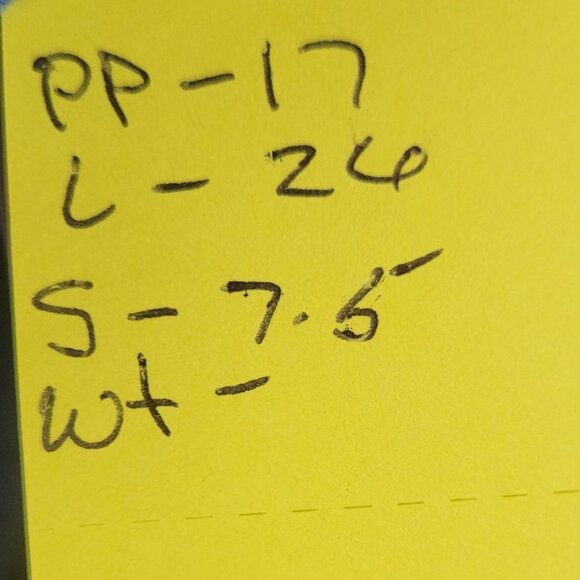 PP - 17
L - 26
S - 7.5
Wt -